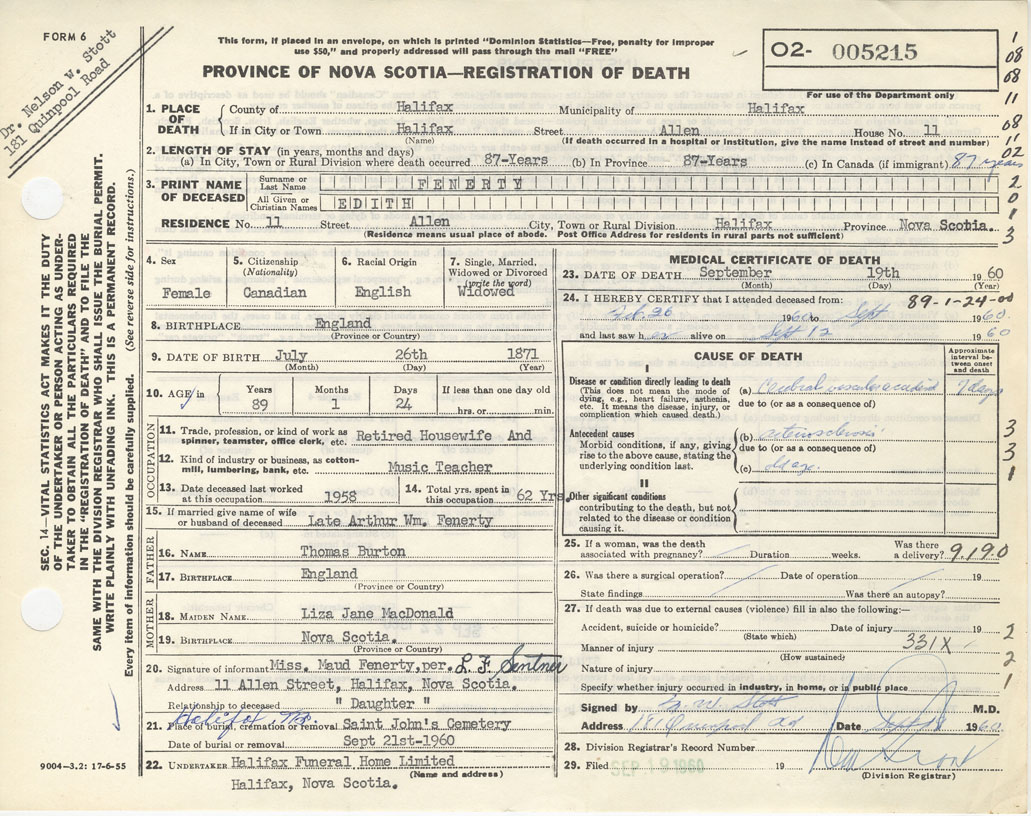 FORM 6
Dr. Nelson W. Stott
181 Quinpool Road
This form, if placed in an envelope, on which is printed "Dominion Statistics—Free, penalty for improper
use $50," and properly addressed will pass through the mail "FREE"
02- 005215
For use of the Department only
PROVINCE OF NOVA SCOTIA—REGISTRATION OF DEATH
1. PLACE OF DEATH County of Halifax Municipality of Halifax
If in City or Town Halifax Street Allen House No. 11
(Name) (If death occurred in a hospital or institution, give the name instead of street and number)
2. LENGTH OF STAY (in years, months and days)
(a) In City, Town or Rural Division where death occurred 87-Years (b) In Province 87-Years (c) In Canada (if immigrant) 87 years
3. PRINT NAME OF DECEASED Surname or Last Name FENERTY
All Given or Christian Names EDITH
RESIDENCE No. 11 Street Allen City, Town or Rural Division Halifax Province Nova Scotia.
(Residence means usual place of abode. Post Office Address for residents in rural parts not sufficient)
4. Sex Female
5. Citizenship (Nationality) Canadian
6. Racial Origin English
7. Single, Married, Widowed or Divorced (write the word) Widowed
8. BIRTHPLACE England
(Province or Country)
9. DATE OF BIRTH July 26th 1871
(Month) (Day) (Year)
10. AGE in Years 89 Months 1 Days 24 If less than one day old hrs. or min.
OCCUPATION
11. Trade, profession, or kind of work as spinner, teamster, office clerk, etc. Retired Housewife And
12. Kind of industry or business, as cotton-mill, lumbering, bank, etc. Music Teacher
13. Date deceased last worked at this occupation 1958
14. Total yrs. spent in this occupation 62 Yrs.
15. If married give name of wife or husband of deceased Late Arthur Wm. Fenerty
FATHER
16. NAME Thomas Burton
17. BIRTHPLACE England
(Province or Country)
MOTHER
18. MAIDEN NAME Liza Jane MacDonald
19. BIRTHPLACE Nova Scotia.
(Province or Country)
20. Signature of informant Miss. Maud Fenerty, per. L. F. Sentner
Address 11 Allen Street, Halifax, Nova Scotia.
Relationship to deceased " Daughter "
Halifax, N.S.
21. Place of burial, cremation or removal Saint John's Cemetery
Date of burial or removal Sept 21st-1960
22. UNDERTAKER Halifax Funeral Home Limited
(Name and address)
Halifax, Nova Scotia.
9004-3.2: 17-6-55
MEDICAL CERTIFICATE OF DEATH
23. DATE OF DEATH September 19th 1960
(Month) (Day) (Year)
24. I HEREBY CERTIFY that I attended deceased from: 89-1-24-00
Feb 26 1960 to Sept 1960
and last saw her alive on Sept 12 1960
CAUSE OF DEATH
Approximate interval between onset and death
I
Disease or condition directly leading to death
(This does not mean the mode of dying, e.g., heart failure, asthenia, etc. It means the disease, injury, or complication which caused death.)
(a) Cerebral vascular accident 7 days
due to (or as a consequence of)
Antecedent causes
Morbid conditions, if any, giving rise to the above cause, stating the underlying condition last.
(b) arteriosclerosis
due to (or as a consequence of)
(c)
II
Other significant conditions
contributing to the death, but not related to the disease or condition causing it.
25. If a woman, was the death associated with pregnancy? Duration weeks. Was there a delivery? 9.190
26. Was there a surgical operation? Date of operation 19
State findings Was there an autopsy?
27. If death was due to external causes (violence) fill in also the following:—
Accident, suicide or homicide? Date of injury 19
(State which)
Manner of injury 331X
(How sustained)
Nature of injury
Specify whether injury occurred in industry, in home, or in public place
Signed by N. W. Stott M.D.
Address 181 Quinpool Rd Date Sept 19 1960
28. Division Registrar's Record Number
29. Filed SEP 19 1960 19
(Division Registrar)
1
08
68
11
08
11
02
2
0
1
3
3
3
1
2
2
1
SEC. 14—VITAL STATISTICS ACT MAKES IT THE DUTY
OF THE UNDERTAKER OR PERSON ACTING AS UNDER-
TAKER TO OBTAIN ALL THE PARTICULARS REQUIRED
IN THE "REGISTRATION OF DEATH" AND TO FILE THE
SAME WITH THE DIVISION REGISTRAR WHO SHALL ISSUE THE BURIAL PERMIT.
WRITE PLAINLY WITH UNFADING INK. THIS IS A PERMANENT RECORD.
Every item of information should be carefully supplied. (See reverse side for instructions.)